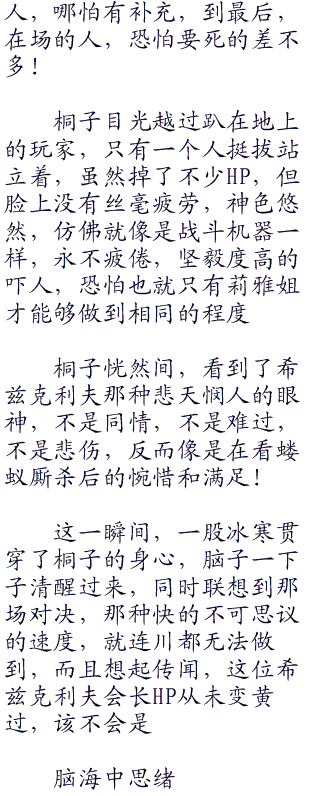 人，哪怕有补充，到最后，
在场的人，恐怕要死的差不
多！
桐子目光越过趴在地上
的玩家，只有一个人挺拔站
立着，虽然掉了不少HP，但
脸上没有丝毫疲劳，神色悠
然，仿佛就像是战斗机器一
样，永不疲倦，坚毅度高的
吓人，恐怕也就只有莉雅姐
才能够做到相同的程度
桐子恍然间，看到了希
兹克利夫那种悲天悯人的眼
神，不是同情，不是难过，
不是悲伤，反而像是在看蝼
蚁厮杀后的惋惜和满足！
这一瞬间，一股冰寒贯
穿了桐子的身心，脑子一下
子清醒过来，同时联想到那
场对决，那种快的不可思议
的速度，就连川都无法做
到，而且想起传闻，这位希
兹克利夫会长HP从未变黄
过，该不会是
脑海中思绪